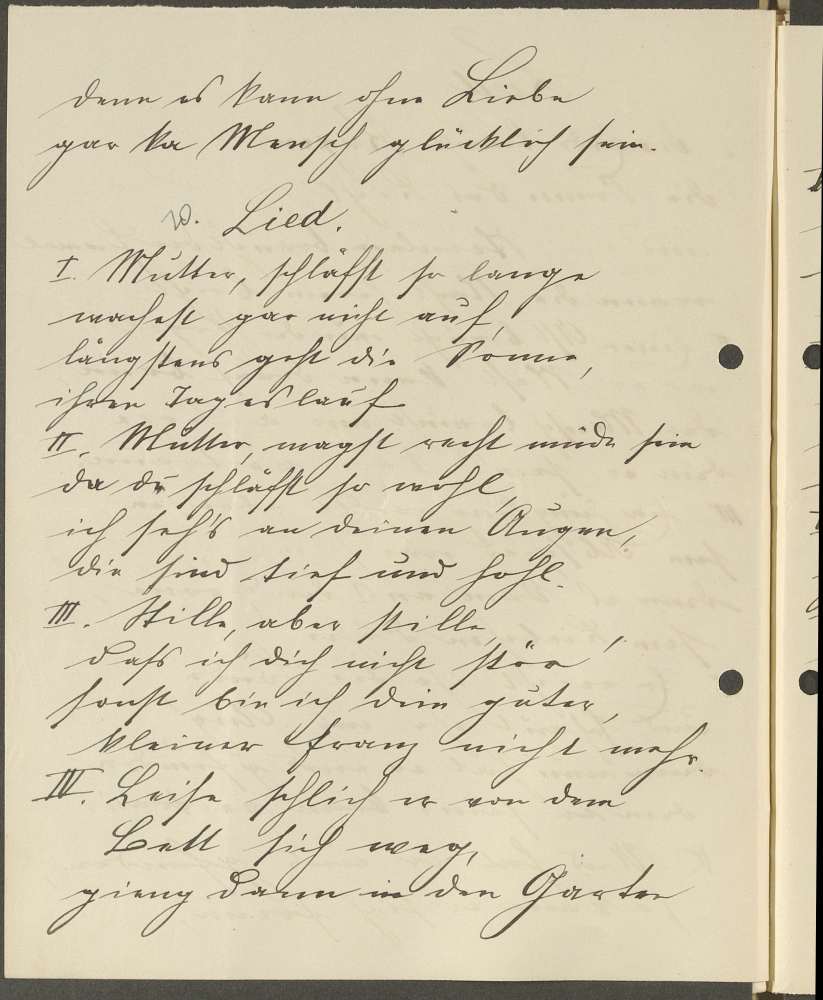 denn es kann ohne Liebe
gar ka Mensch glücklich sein.
20. Lied.
I. Mutter, schläfst so lange
wachest gar nicht auf,
längstens geht die Sonne,
ihren Tageslauf
II. Mutter, magst recht müde sein
da du schläfst so wohl,
ich seh's an deinen Augen,
die sind tief und hohl.
III. Stille, aber stille,
daß ich dich nicht stör'
sonst bin ich dein guter,
kleiner Franz nicht mehr.
IV. Leise schlich er von dem
Bett sich weg,
gieng dann in den Garten